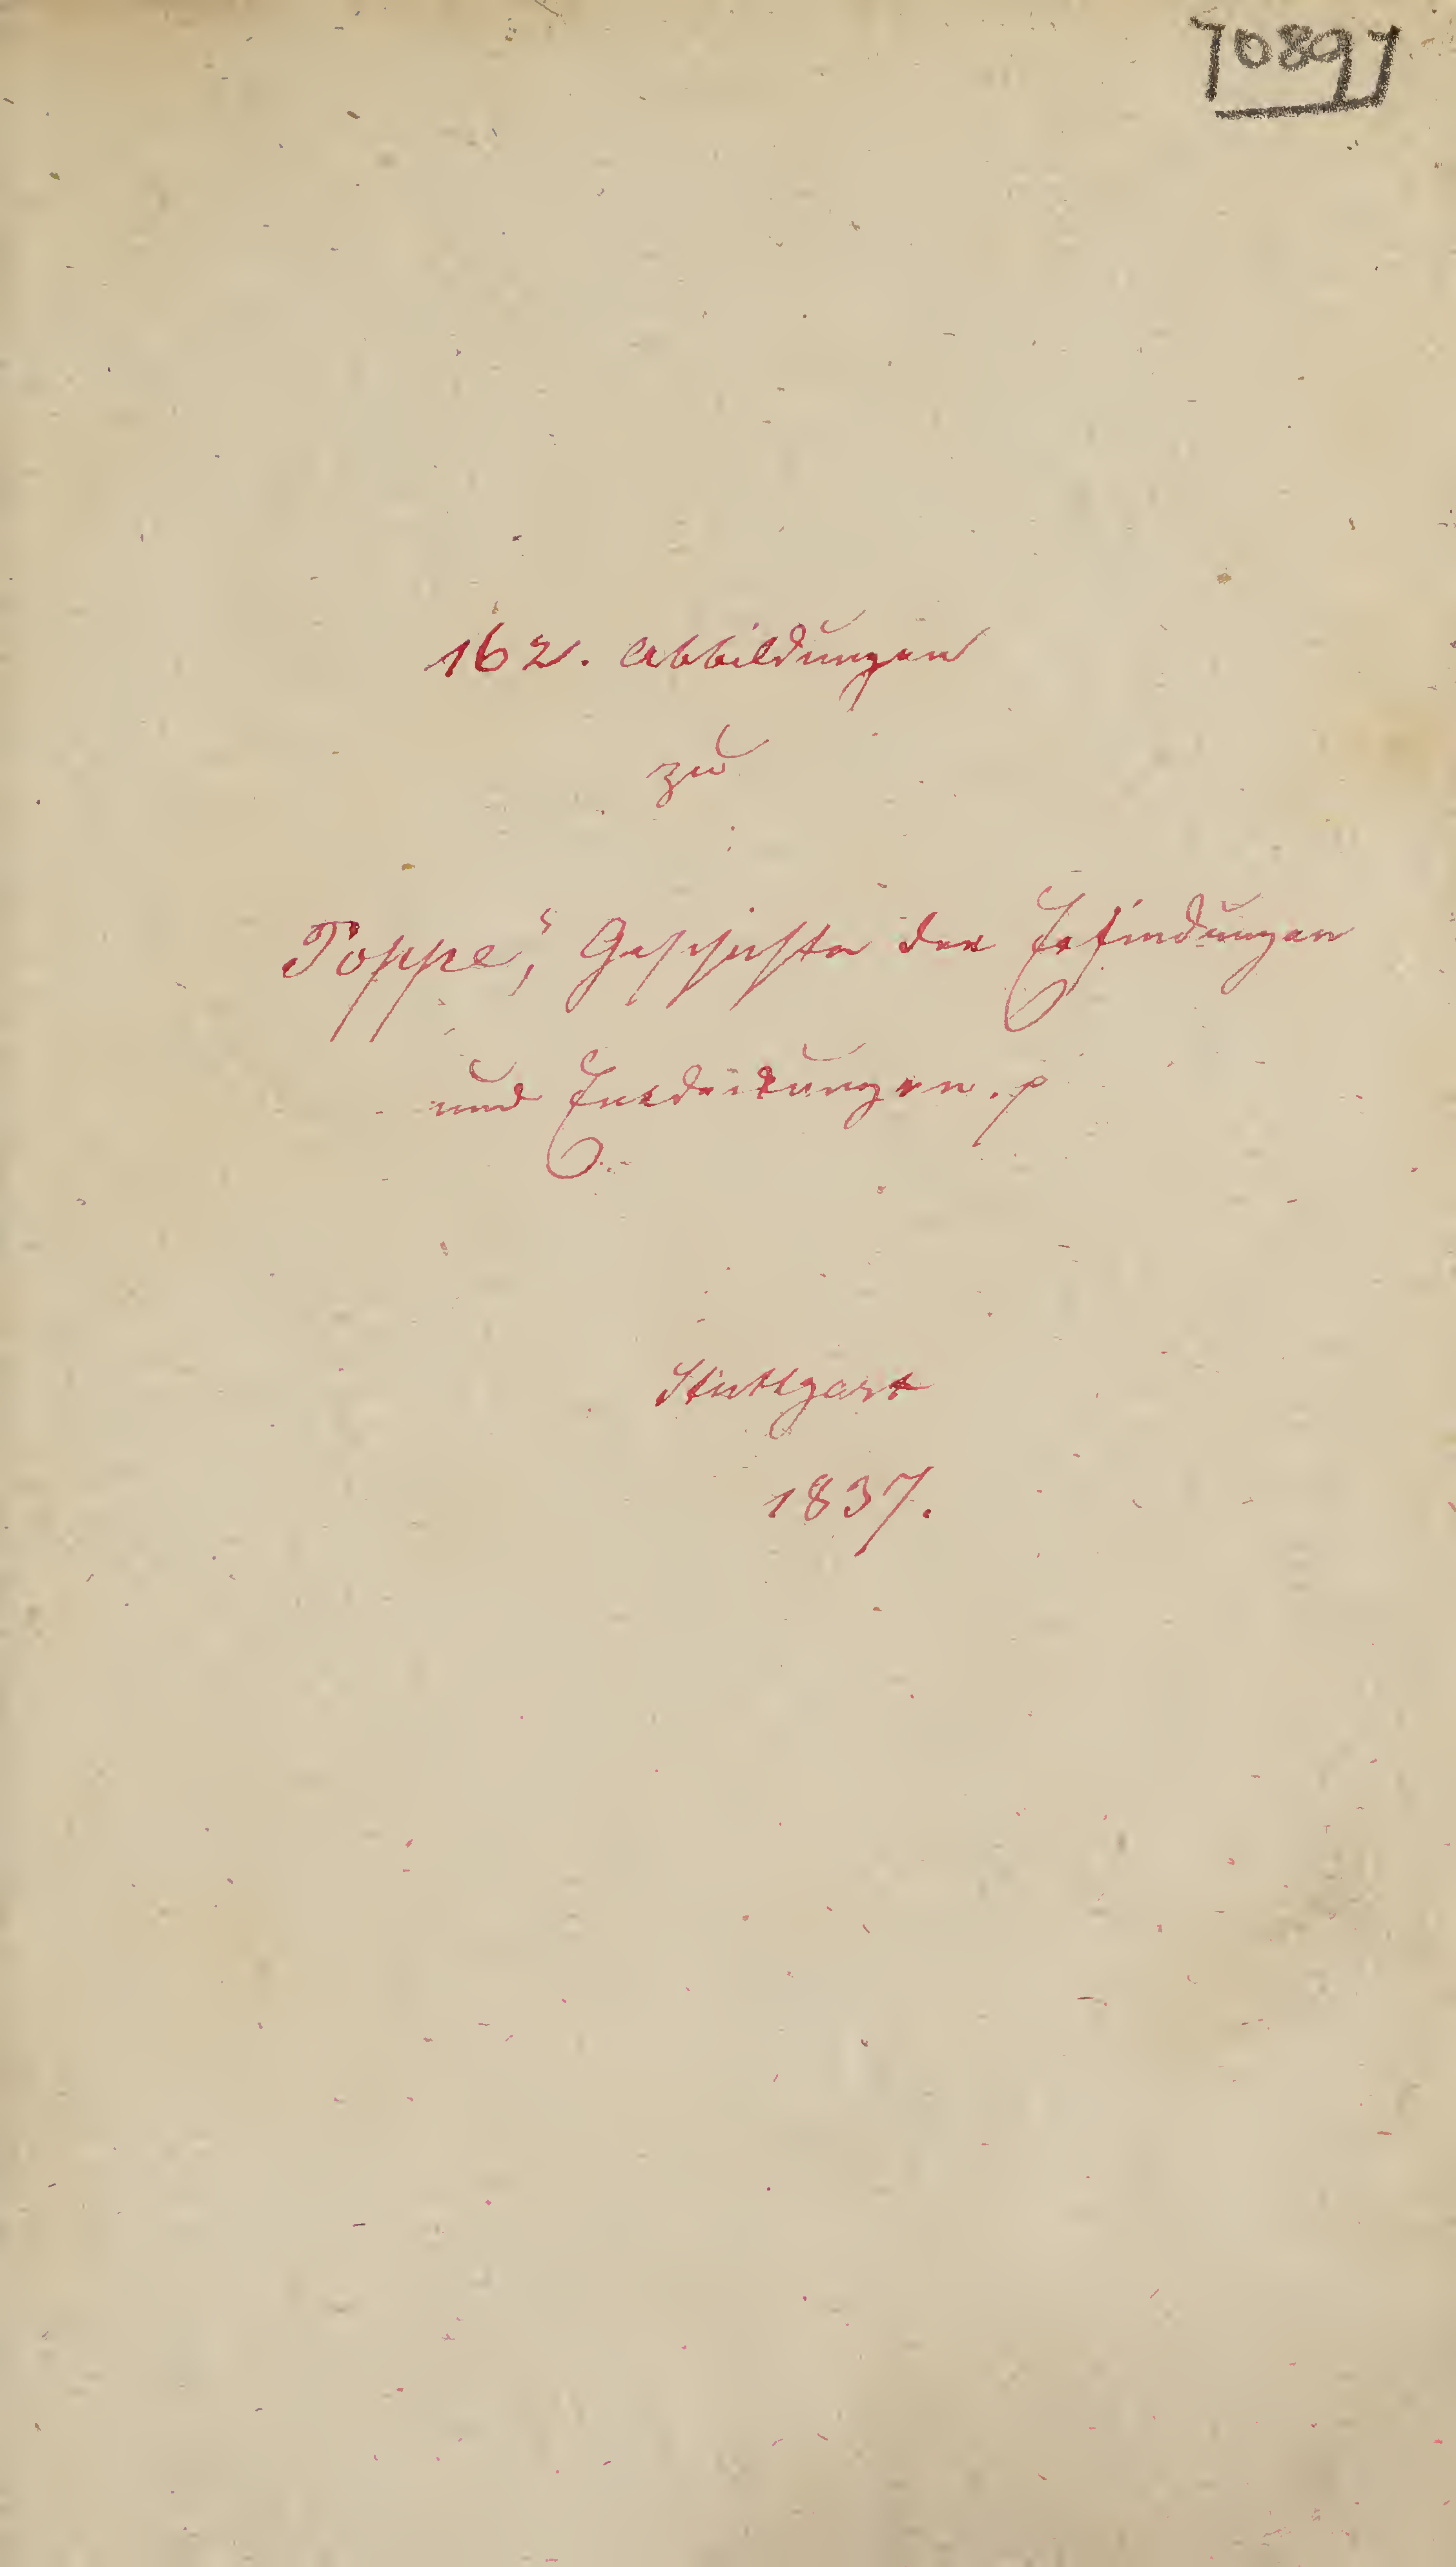 70897
162. Abbildungen
zu
Poppe, Geschichte der Erfindungen
und Entdeckungen. p
Stuttgart
1837.